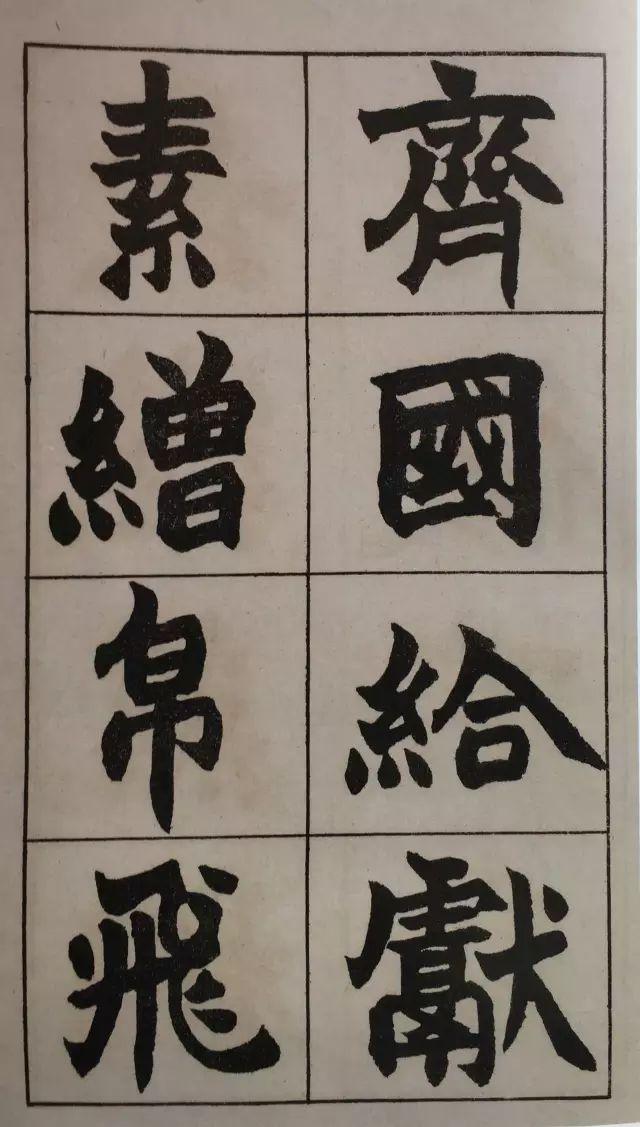 齊國給獻
素繒帛飛